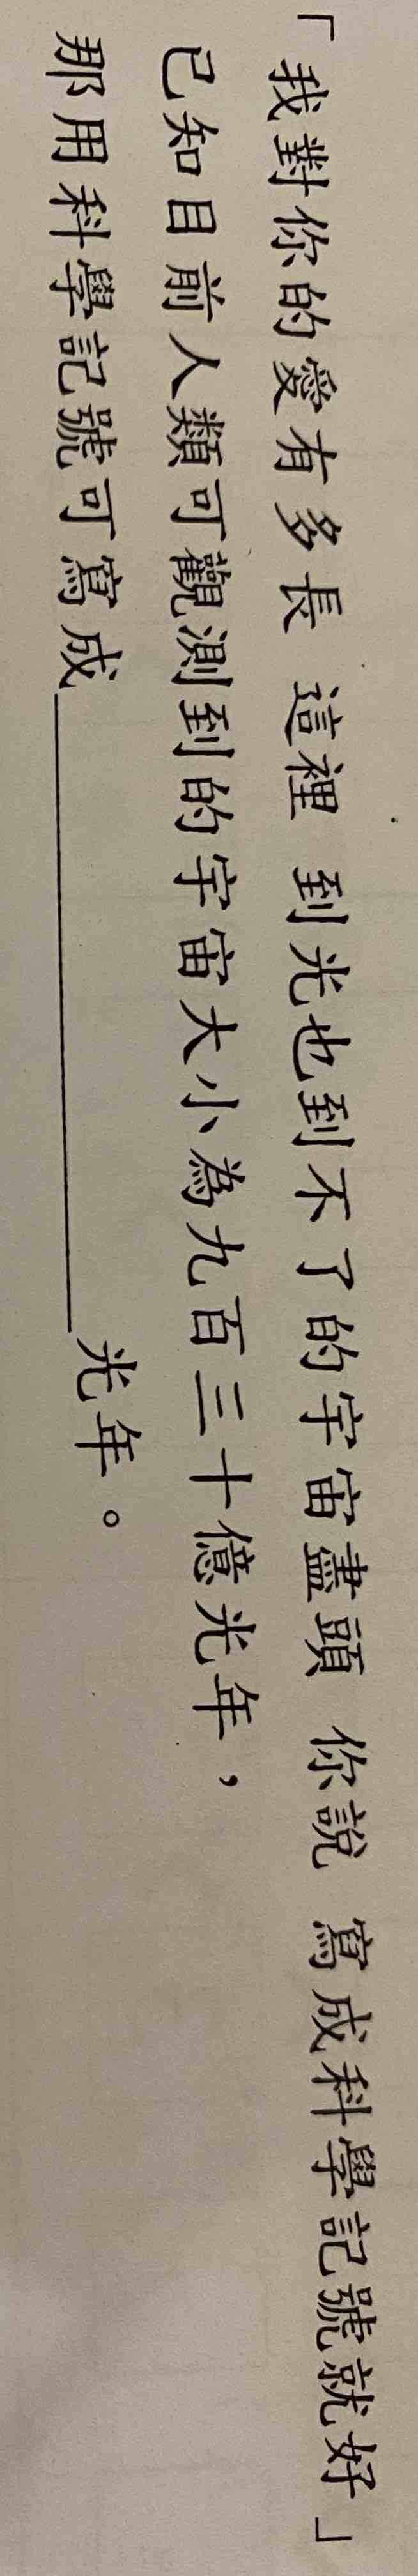 「我對你的愛有多長 這裡 到光也到不了的宇宙盡頭 你說 寫成科學記號就好」
已知目前人類可觀測到的宇宙大小為九百三十億光年，
那用科學記號可寫成＿＿＿＿＿＿＿＿光年。